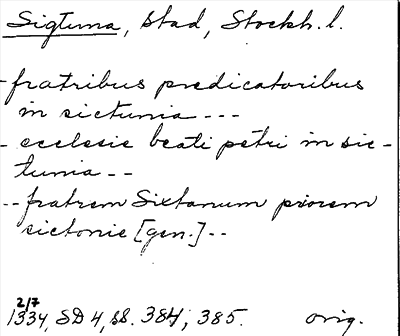 Sigtuna, stad, Stockh. l.
- fratribus predicatoribus
in sictunia ---
- ecclesie beati petri in sic-
tunia --
-- fratrem Sixtanum priorem
sictonie [gen.] --
2/7
1334, SD 4, ss. 384, 385. orig.